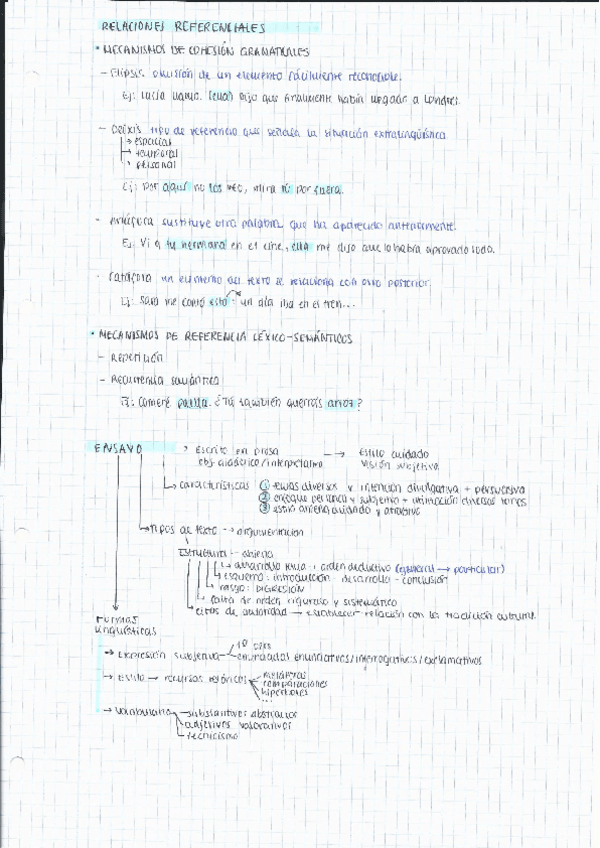 RELACIONES REFERENCIALES
• MECANISMOS DE COHESIÓN GRAMATICALES
- Elipsis omisión de un elemento fácilmente reconocible.
Ej: Lucía llamó. (ella) Dijo que finalmente habían llegado a Londres.
- Deíxis tipo de referencia que señala la situación extralingüística
→ espacial
→ temporal
→ personal
Ej: Por aquí no los veo, mira tú por fuera.
- Anáfora sustituye otra palabra que ha aparecido anteriormente.
Ej: Vi a tu hermana en el cine, ella me dijo que lo había aprovado todo.
- Catáfora un elemento del texto se relaciona con otro posterior.
Ej: Sara me contó esto: un día iba en el tren...
• MECANISMOS DE REFERENCIA LÉXICO-SEMÁNTICOS
- Repetición
- Recurrencia semántica
Ej: Comeré paella. ¿Tú también querrás arroz?
ENSAYO → Escrito en prosa → Estilo cuidado
obj. didáctico/interpretativo visión subjetiva
→ características ① temas diversos y intención divulgativa + persuasiva
② enfoque personal y subjetivo + utilización diversos tonos
③ estilo ameno, cuidado y atractivo
→ tipos de texto → argumentación
Estructura - abierta
→ desarrollo tema: orden deductivo (general → particular)
→ esquema: introducción - desarrollo - conclusión
→ rasgo: DIGRESIÓN
→ falta de orden riguroso y sistemático
→ citas de autoridad → establecer relación con la tradición cultural.
Formas
lingüísticas
→ Expresión subjetiva 1ª pers
enunciados enunciativos/interrogativos/exclamativos
→ Estilo → recursos retóricos metáforas
comparaciones
hipérboles
...
→ vocabulario - substantivos abstractos
- adjetivos valorativos
- tecnicismo